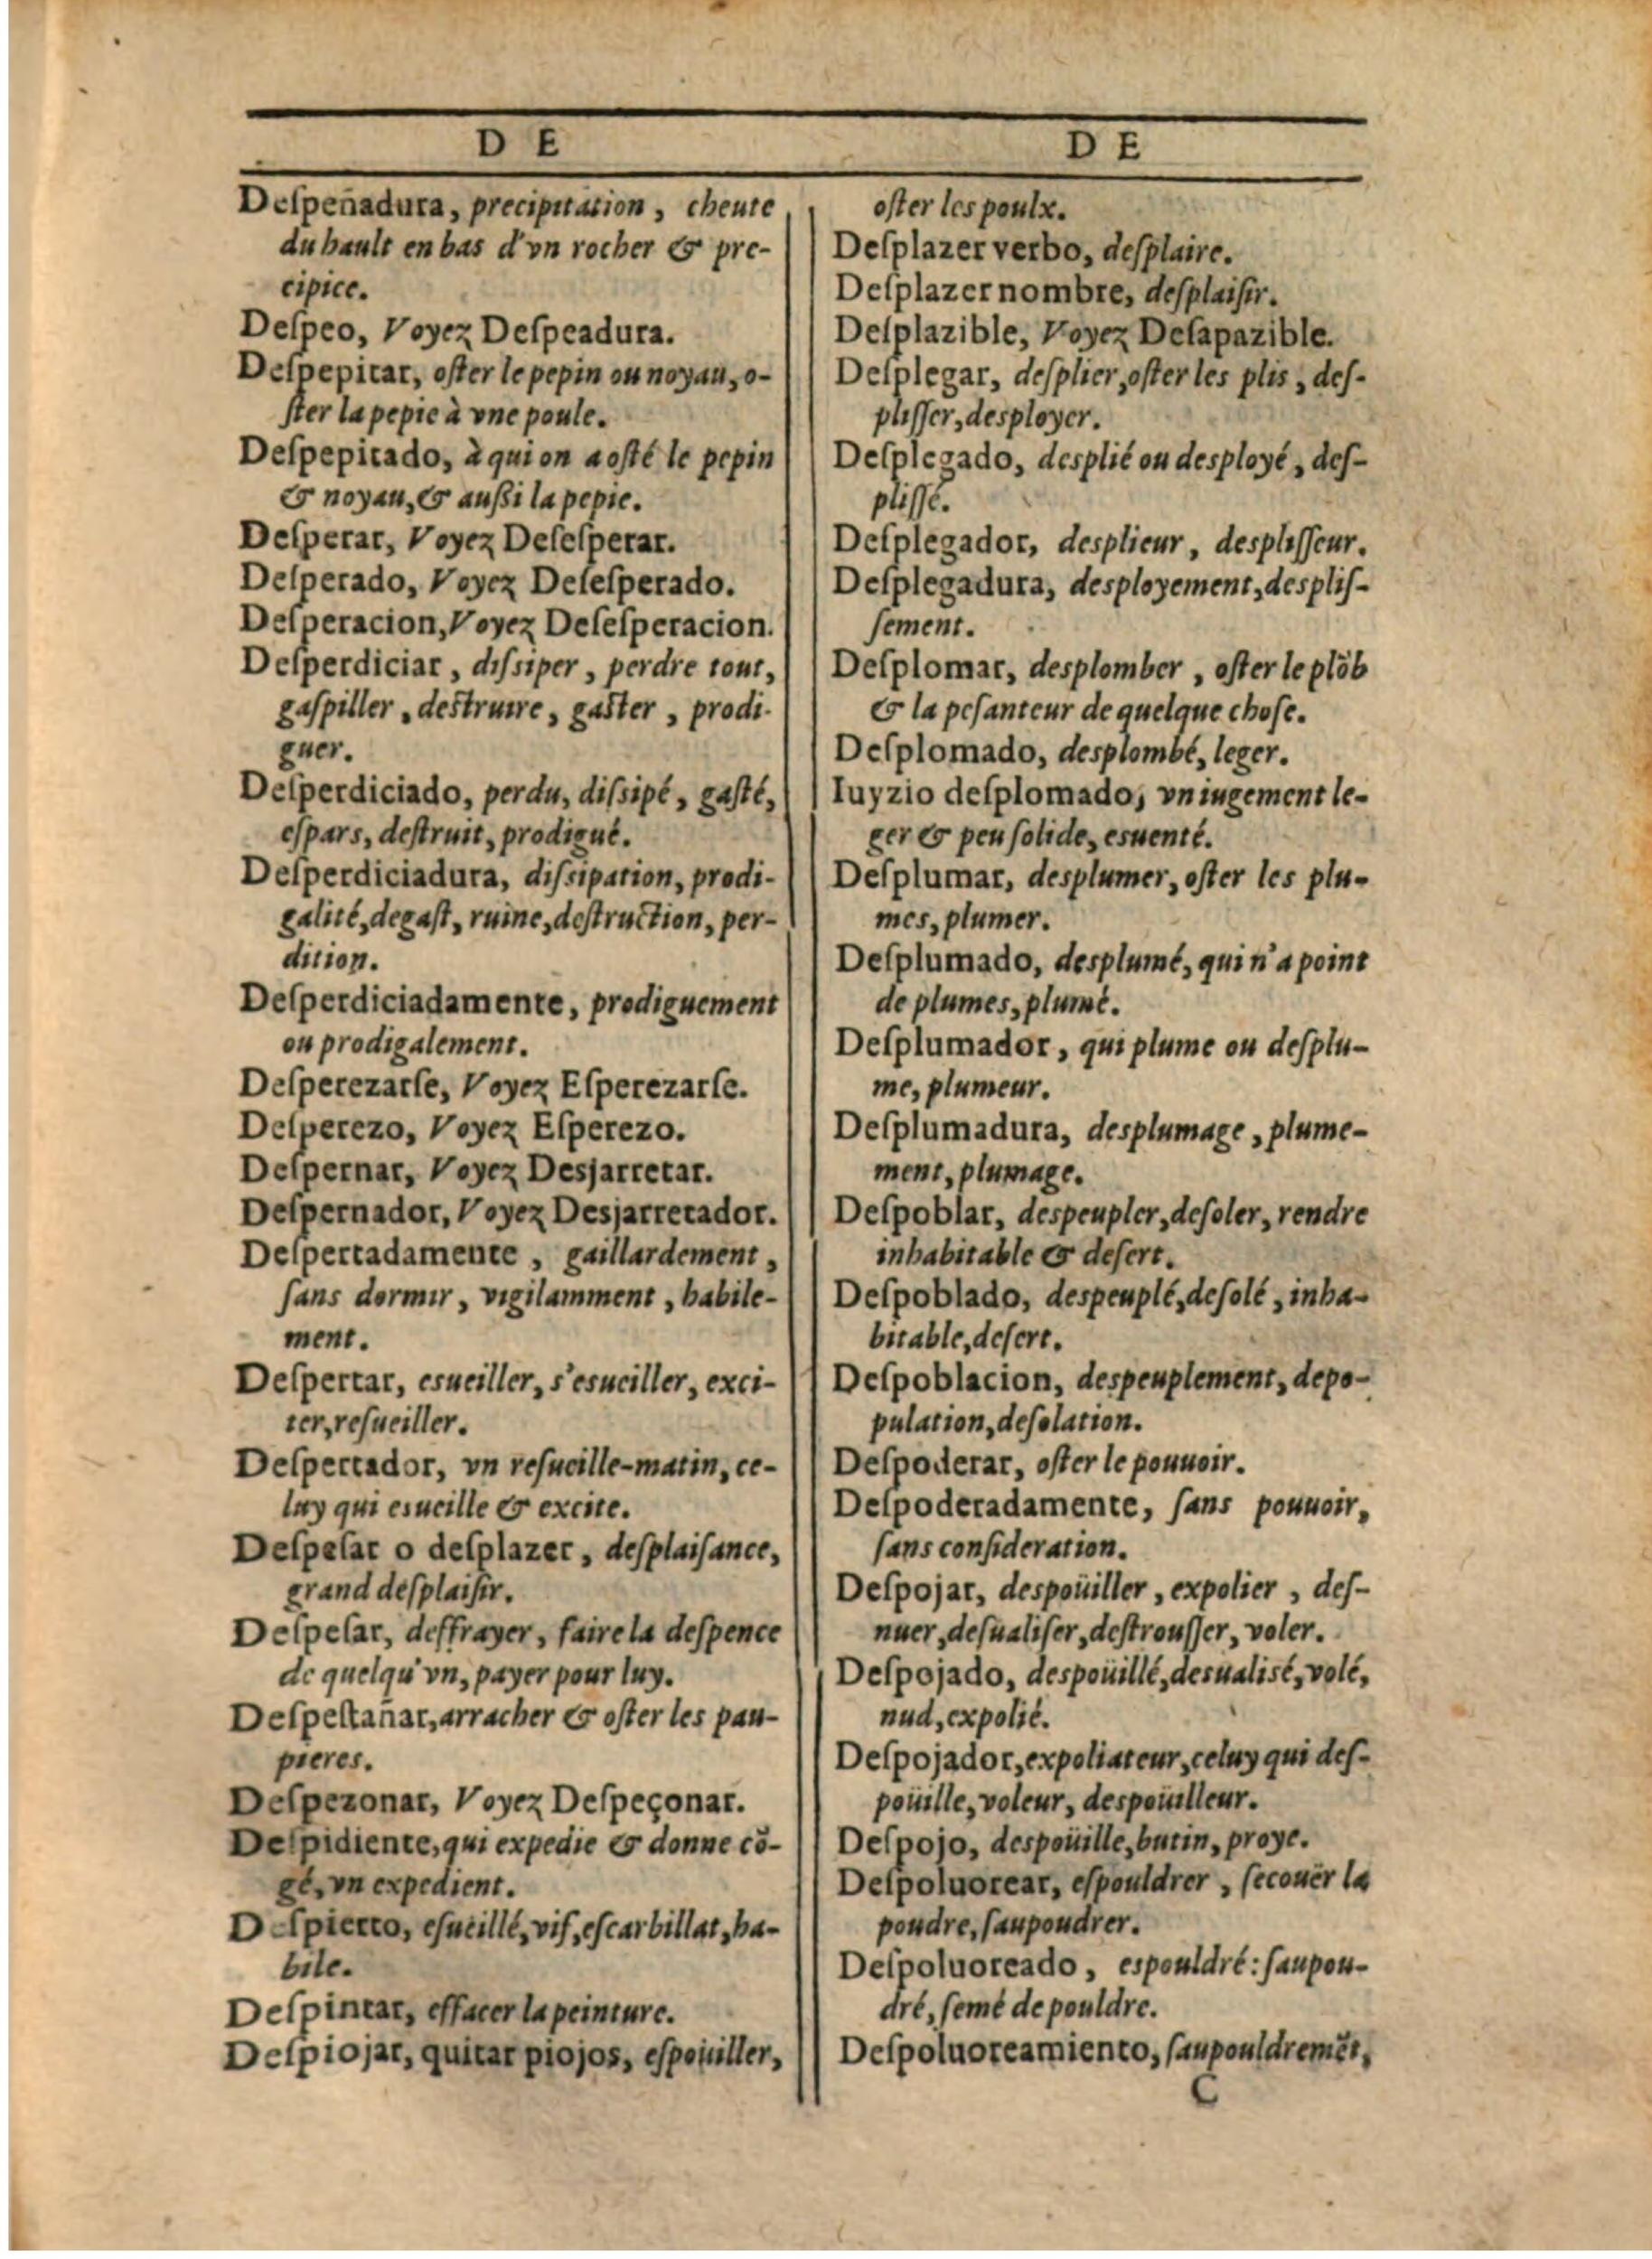 D E
Deſpeñadura, precipitation, cheute
du hault en bas d'vn rocher & pre-
cipice.
Deſpeo, Voyez Deſpeadura.
Deſpepitar, oſter le pepin ou noyau, o-
ſter la pepie à vne poule.
Deſpepitado, à qui on a oſté le pepin
& noyau, & auſsi la pepie.
Deſperar, Voyez Deſeſperar.
Deſperado, Voyez Deſeſperado.
Deſperacion, Voyez Deſeſperacion.
Deſperdiciar, diſsiper, perdre tout,
gaſpiller, deſtruire, gaſter, prodi-
guer.
Deſperdiciado, perdu, diſsipé, gaſté,
eſpars, deſtruit, prodigué.
Deſperdiciadura, diſsipation, prodi-
galité, degaſt, ruine, deſtruction, per-
dition.
Deſperdiciadamente, prodiguement
ou prodigalement.
Deſperezarſe, Voyez Eſperezarſe.
Deſperezo, Voyez Eſperezo.
Deſpernar, Voyez Desjarretar.
Deſpernador, Voyez Desjarretador.
Deſpertadamente, gaillardement,
ſans dormir, vigilamment, habile-
ment.
Deſpertar, esueiller, s'esueiller, exci-
ter, reſueiller.
Deſpertador, vn reſueille-matin, ce-
luy qui esueille & excite.
Deſpeſar o deſplazer, deſplaiſance,
grand deſplaiſir.
Deſpeſar, deffrayer, faire la deſpence
de quelqu'vn, payer pour luy.
Deſpeſtañar, arracher & oſter les pau-
pieres.
Deſpezonar, Voyez Deſpeçonar.
Deſpidiente, qui expedie & donne cõ-
gé, vn expedient.
Deſpierto, eſueillé, vif, eſcarbillat, ha-
bile.
Deſpintar, effacer la peinture.
Deſpiojar, quitar piojos, eſpoüiller,
D E
oſter les poulx.
Deſplazer verbo, deſplaire.
Deſplazer nombre, deſplaiſir.
Deſplazible, Voyez Deſapazible.
Deſplegar, deſplier, oſter les plis, deſ-
pliſſer, desployer.
Deſplegado, desplié ou desployé, deſ-
pliſſé.
Deſplegador, desplieur, despliſſeur.
Deſplegadura, desployement, displiſ-
ſement.
Deſplomar, desplomber, oſter le plõb
& la peſanteur de quelque choſe.
Deſplomado, desplombé, leger.
Iuyzio deſplomado, vn iugement le-
ger & peu ſolide, esuenté.
Deſplumar, desplumer, oſter les plu-
mes, plumer.
Deſplumado, desplumé, qui n'a point
de plumes, plumé.
Deſplumador, qui plume ou deſplu-
me, plumeur.
Deſplumadura, desplumage, plume-
ment, plumage.
Deſpoblar, despeupler, deſoler, rendre
inhabitable & deſert.
Deſpoblado, despeuplé, deſolé, inha-
bitable, deſert.
Deſpoblacion, despeuplement, depo-
pulation, deſolation.
Deſpoderar, oſter le pouuoir.
Deſpoderadamente, ſans pouuoir,
ſans conſideration.
Deſpojar, despoüiller, expolier, deſ-
nuer, deſualiſer, deſtrouſſer, voler.
Deſpojado, despoüillé, desualisé, volé,
nud, expolié.
Deſpojador, expoliateur, celuy qui deſ-
poüille, voleur, despoüilleur.
Deſpojo, despoüille, butin, proye.
Deſpoluorear, eſpouldrer, ſecouër la
poudre, ſaupoudrer.
Deſpoluoreado, espouldré: ſaupou-
dré, ſemé de pouldre.
Deſpoluoreamiento, ſaupouldremẽt,
C